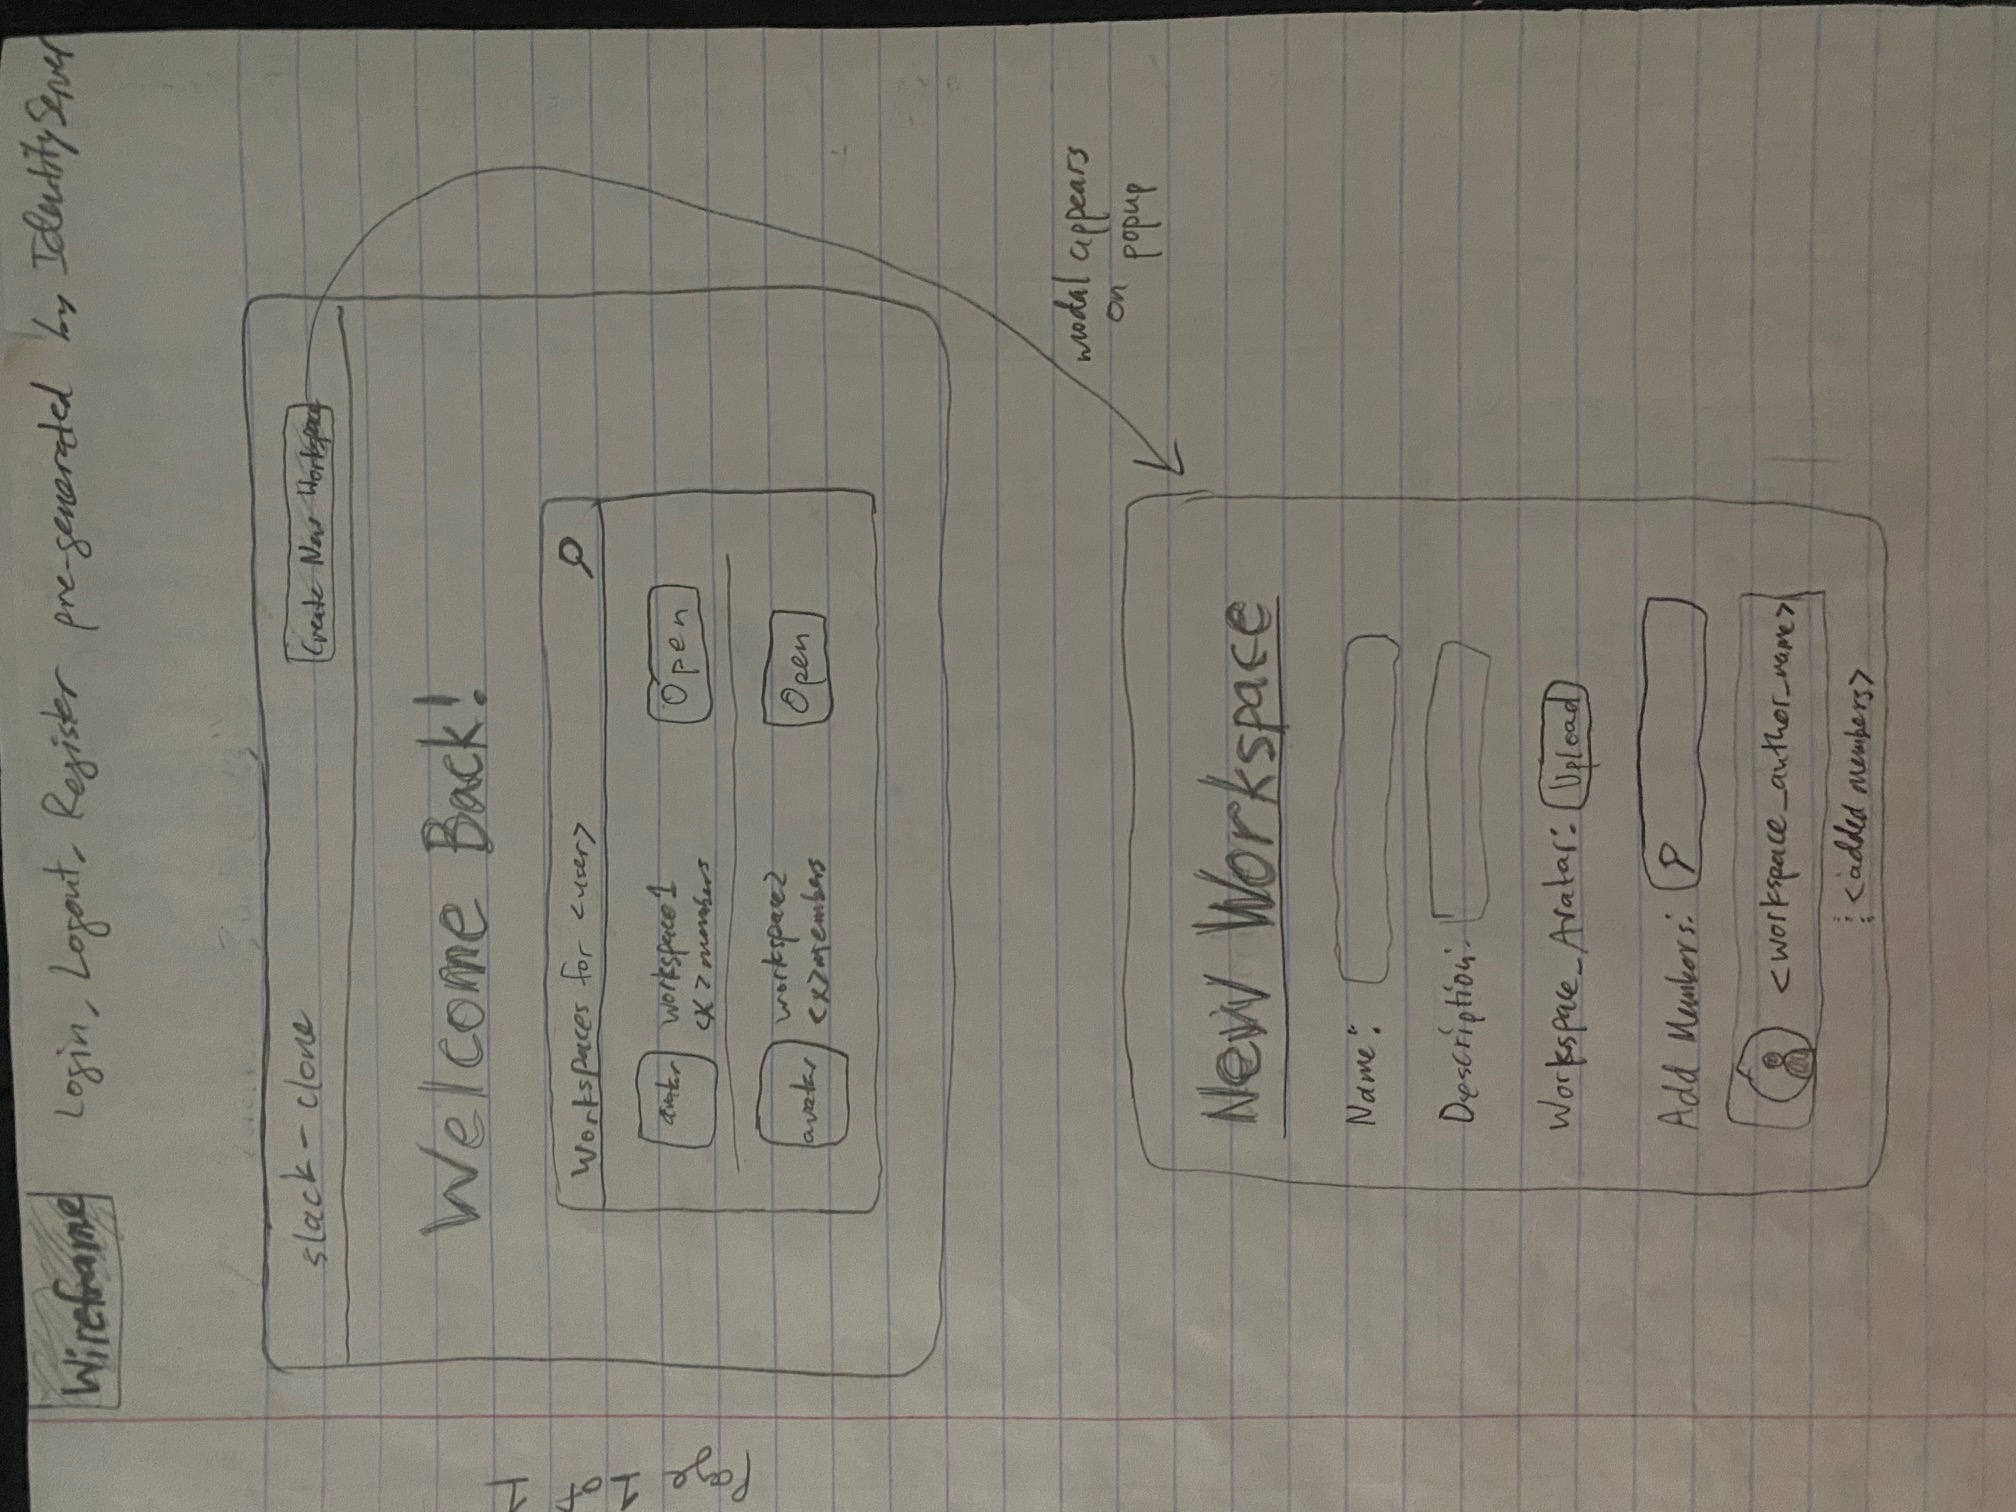 Wireframe
Login, Logout, Register pre-generated by IdentityServer
Page 1 of 1
slack-clone
Create New Workspace
Welcome Back!
Workspaces for <user>
avatar
workspace1
<X> members
Open
avatar
workspace2
<x> members
Open
modal appears
on popup
New Workspace
Name:
Description:
Workspace_Avatar:
Upload
Add Members:
<workspace_author_name>
<added members>